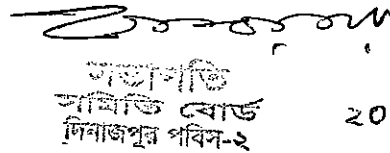 সভাপতি
সমিতি বোর্ড 20
দিনাজপুর পবিস-২